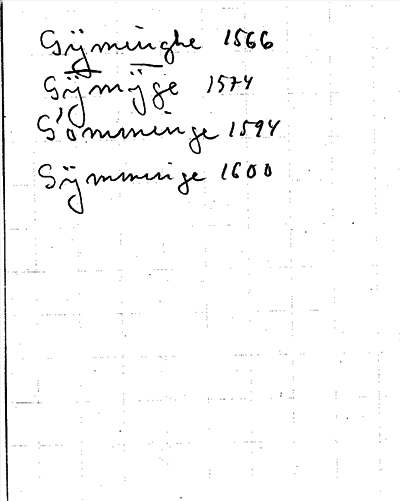 Sÿminghe 1566
Sÿmÿge 1574
S'omminge 1594
Sÿmminge 1600